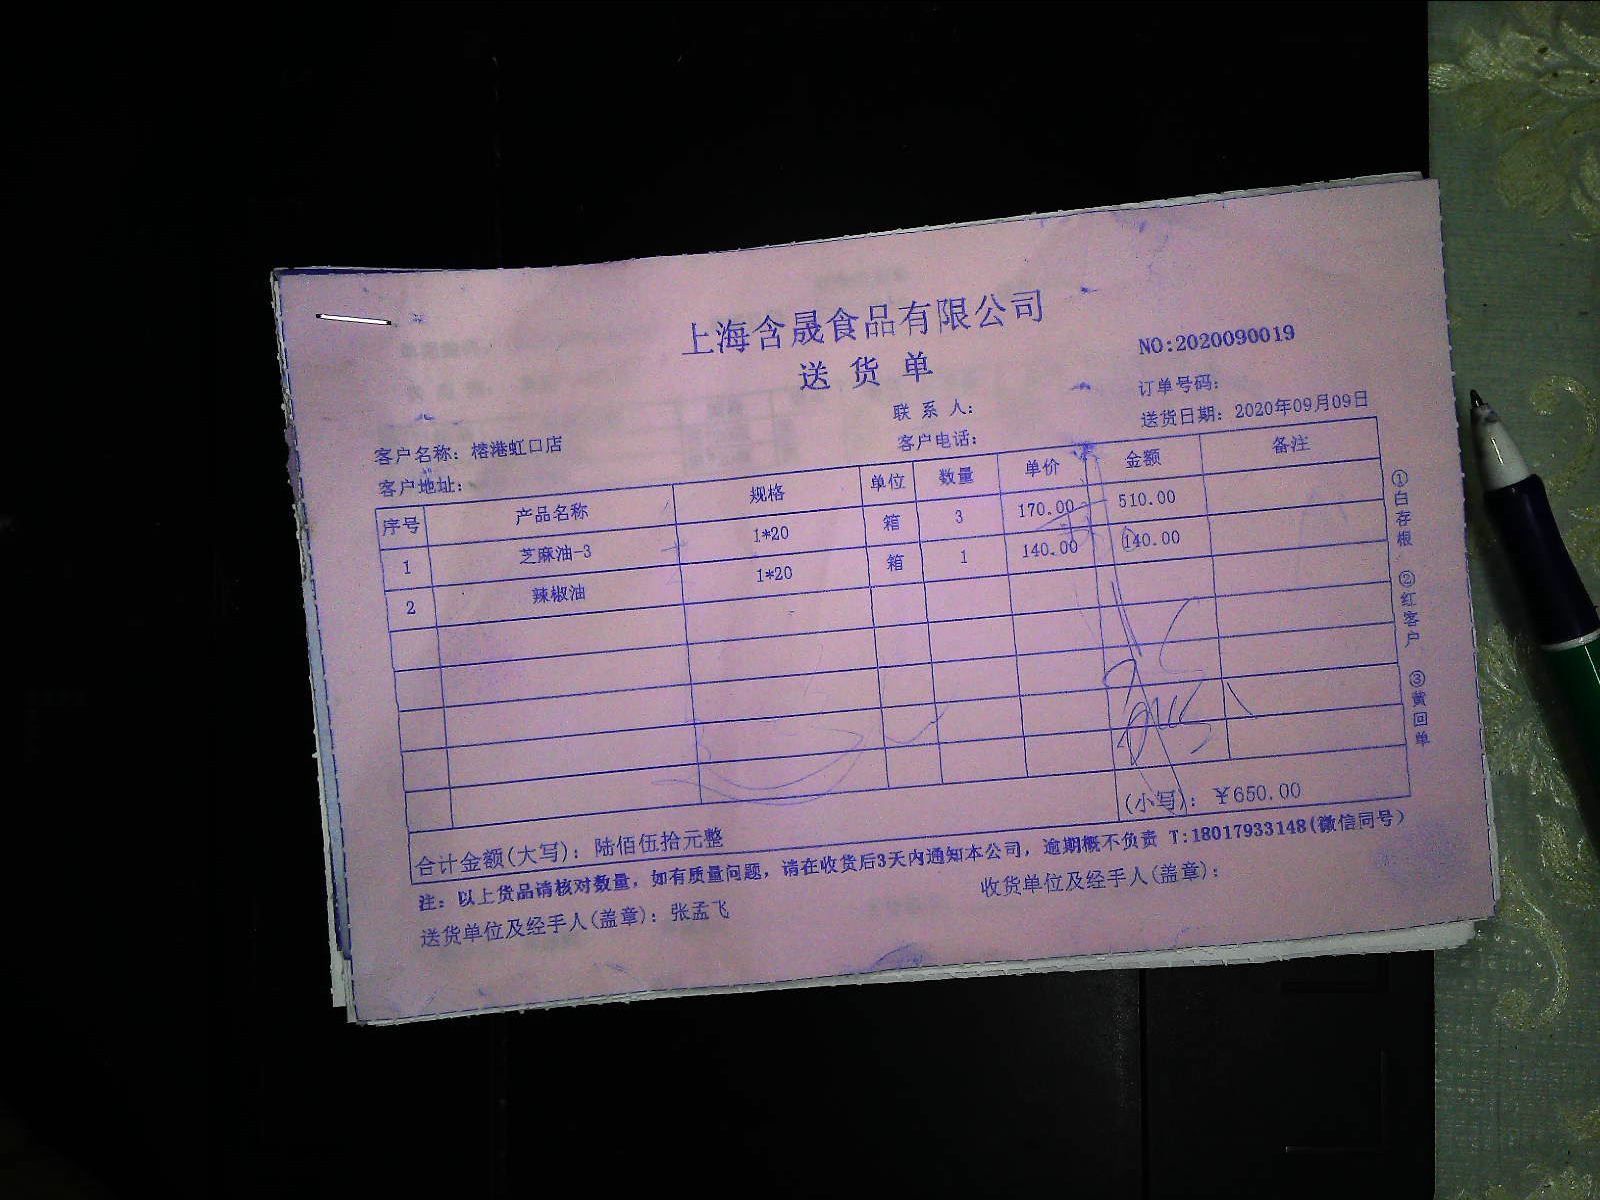 上海含晟食品有限公司
送 货 单
NO:2020090019
联 系 人:
订单号码:
客户名称: 榕港虹口店
客户电话:
送货日期: 2020年09月09日
客户地址:
序号 产品名称 规格 单位 数量 单价 金额 备注
1 芝麻油-3 1*20 箱 3 170.00 510.00
2 辣椒油 1*20 箱 1 140.00 140.00
合计金额(大写): 陆佰伍拾元整 (小写): ¥650.00
注: 以上货品请核对数量, 如有质量问题, 请在收货后3天内通知本公司, 逾期概不负责 T:18017933148(微信同号)
送货单位及经手人(盖章): 张孟飞 收货单位及经手人(盖章):
①白存根 ②红客户 ③黄回单